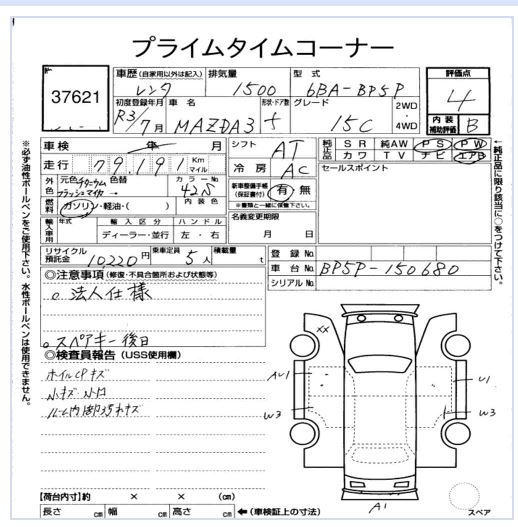 プライムタイムコーナー
37621
車歴 (自家用以外は記入) 排気量 型式 評価点
レンタ 1500 6BA-BP5P 4
初度登録年月 車名 形状・ドア数 グレード 2WD 内装補助評価
R3/7月 MAZDA3 15C 4WD B
車検 年 月 シフト AT
純正品 SR 純AW PS PW
カワ TV ナビ エアB
走行 79,191 Km マイル 冷房 AC セールスポイント
外色 元色 色替 カラーNo.
マイカ→ 42S
新車整備手帳(保証書付) 有・無
※書類と一緒に保管下さい。
燃料 ガソリン・軽油・( ) 内装色
名義変更期限
月 日
輸入車用 年式 輸入区分 ハンドル
ディーラー・並行 左・右
リサイクル預託金 10220円 乗車定員 5人 積載量 t
登録No.
車台No. BP5P-150680
シリアルNo.
◎注意事項 (修復・不具合箇所および状態等)
○法人仕様
○スペアキー後日
◎検査員報告 (USS使用欄)
ホイルCPキズ
小キズ・小凹
※必ず油性ボールペンをご使用下さい。水性ボールペンは使用できません。
←純正品に限り該当に○をつけて下さい。
XX
AU1 U1
W3 W3
A1
スペア
【荷台内寸】約 × × (cm)
長さ cm 幅 cm 高さ cm ←(車検証上の寸法)